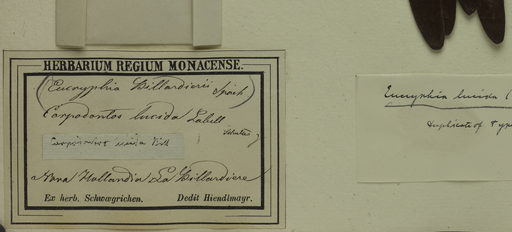 HERBARIUM REGIUM MONACENSE.
(Eucryphia Billardieri Spach
Carpodontos lucida Labill
Nova Hollandia La Billardiere
Ex herb. Schwægrichen. Dedit Hiendlmayr.
Eucryphia lucida (
duplicate of Type